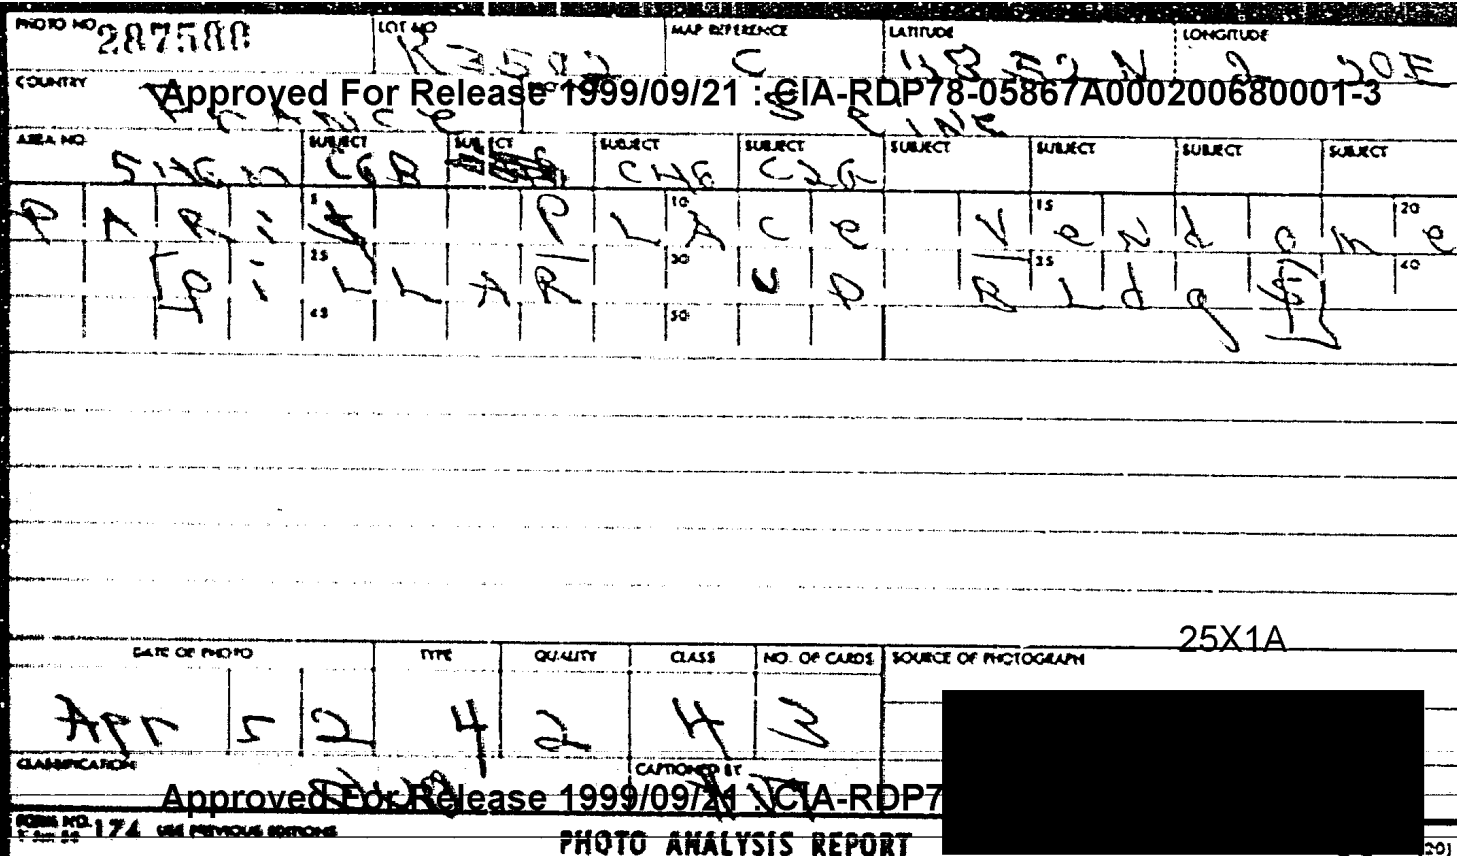 PHOTO NO. 287580 LOT NO MAP REFERENCE C LATITUDE 48 52 N LONGITUDE 2 20E
COUNTRY FRANCE SEINE
Approved For Release 1999/09/21 : CIA-RDP78-05867A000200680001-3
AREA NO. SUBJECT CGB SUBJECT SUBJECT CHG SUBJECT C2G SUBJECT SUBJECT SUBJECT SUBJECT
PARiS PLACe VeNdome
5 10 15 20
[PiLLAR UP BLdg]
25 30 35 40
45 50
25X1A
DATE OF PHOTO TYPE QUALITY CLASS NO. OF CARDS SOURCE OF PHOTOGRAPH
Apr 52 4 2 4 3
CLASSIFICATION CAPTIONED BY
Approved For Release 1999/09/21 : CIA-RDP7
FORM NO. 174 USE PREVIOUS EDITIONS
PHOTO ANALYSIS REPORT
20)